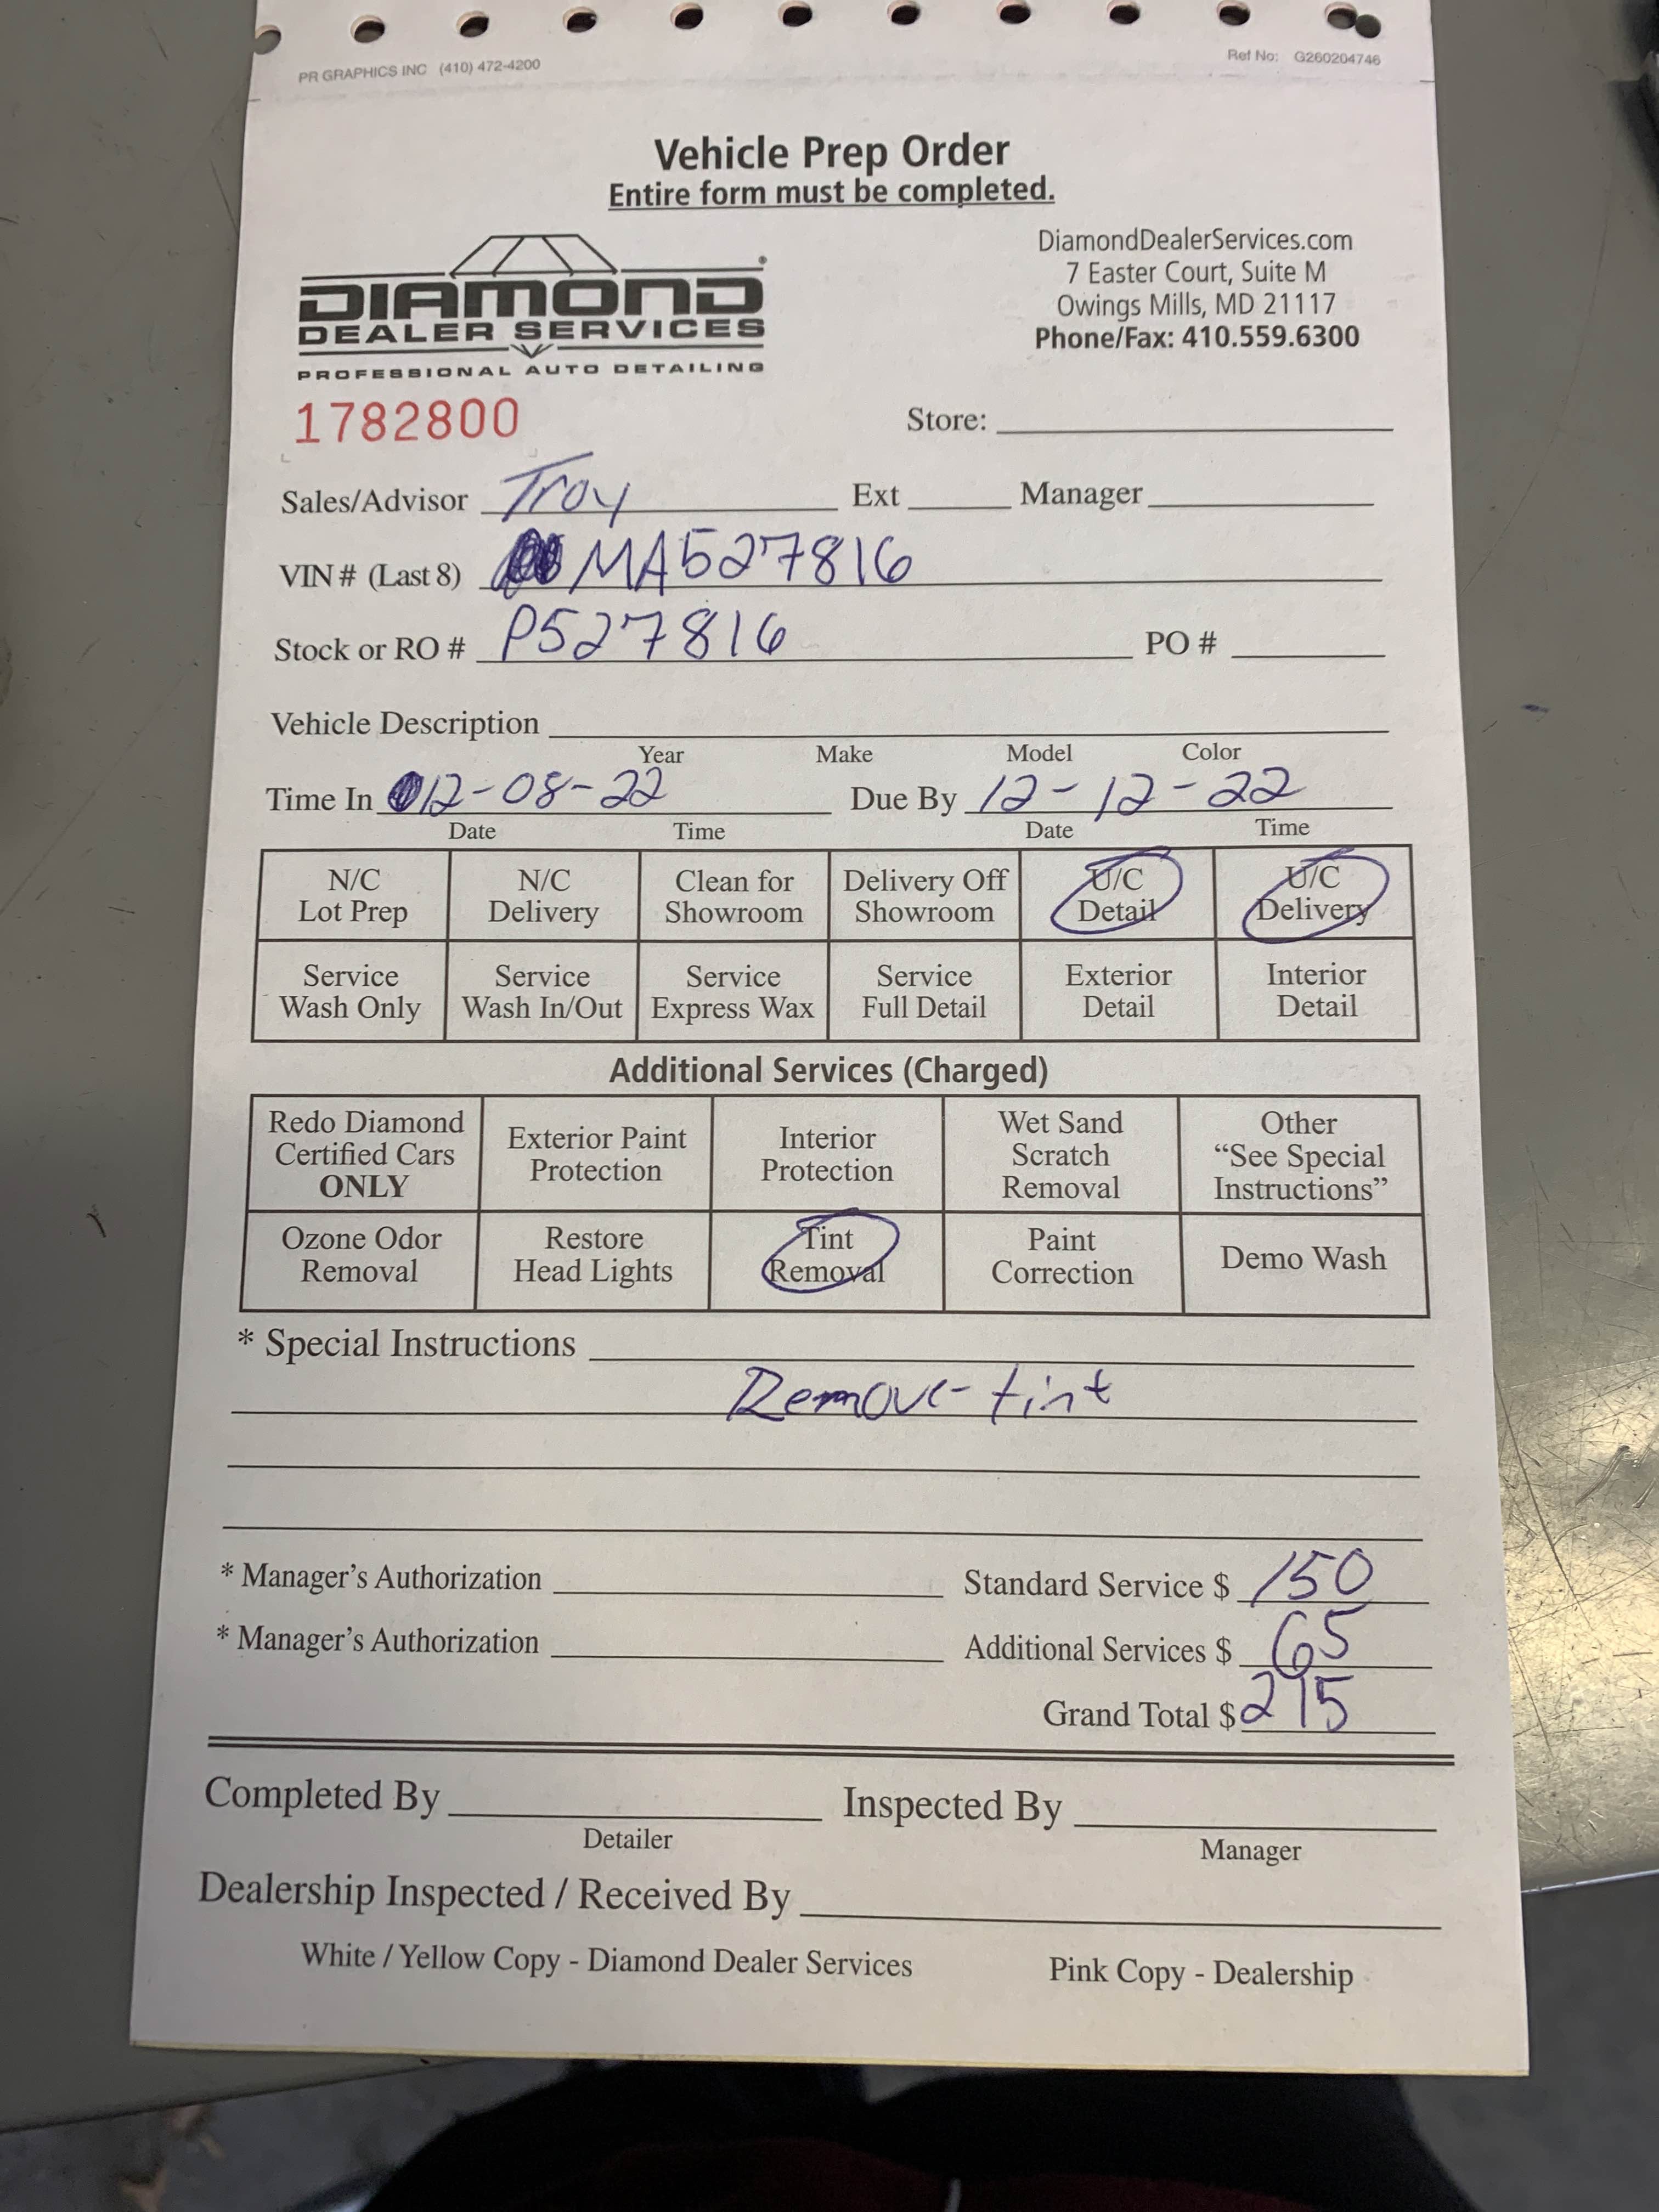 PR GRAPHICS INC (410) 472-4200 Ref No: G260204746
Vehicle Prep Order
Entire form must be completed.
DIAMOND
DEALER SERVICES
PROFESSIONAL AUTO DETAILING
DiamondDealerServices.com
7 Easter Court, Suite M
Owings Mills, MD 21117
Phone/Fax: 410.559.6300
1782800 Store:
Sales/Advisor Troy Ext Manager
VIN # (Last 8) MA527816
Stock or RO # P527816 PO #
Vehicle Description
Year Make Model Color
Time In 12-08-22 Due By 12-12-22
Date Time Date Time
N/C Lot Prep
N/C Delivery
Clean for Showroom
Delivery Off Showroom
U/C Detail
U/C Delivery
Service Wash Only
Service Wash In/Out
Service Express Wax
Service Full Detail
Exterior Detail
Interior Detail
Additional Services (Charged)
Redo Diamond Certified Cars ONLY
Exterior Paint Protection
Interior Protection
Wet Sand Scratch Removal
Other "See Special Instructions"
Ozone Odor Removal
Restore Head Lights
Tint Removal
Paint Correction
Demo Wash
* Special Instructions
Remove tint
* Manager's Authorization Standard Service $ 150
* Manager's Authorization Additional Services $ 65
Grand Total $ 215
Completed By Inspected By
Detailer Manager
Dealership Inspected / Received By
White / Yellow Copy - Diamond Dealer Services Pink Copy - Dealership